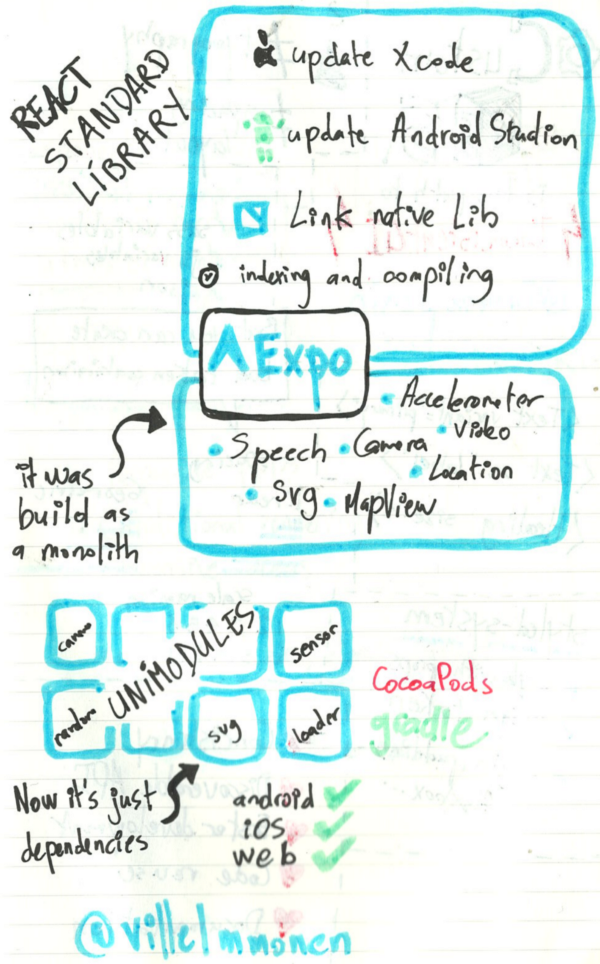 REACT
STANDARD
LIBRARY
update Xcode
update Android Studion
Link native Lib
indexing and compiling
Expo
Accelerometer
Video
Speech
Camera
Location
Svg
MapView
it was
build as
a monolith
UNIMODULES
sensor
svg
CocoaPods
gradle
Now it's just
dependencies
android
iOS
web
@villeImmonen